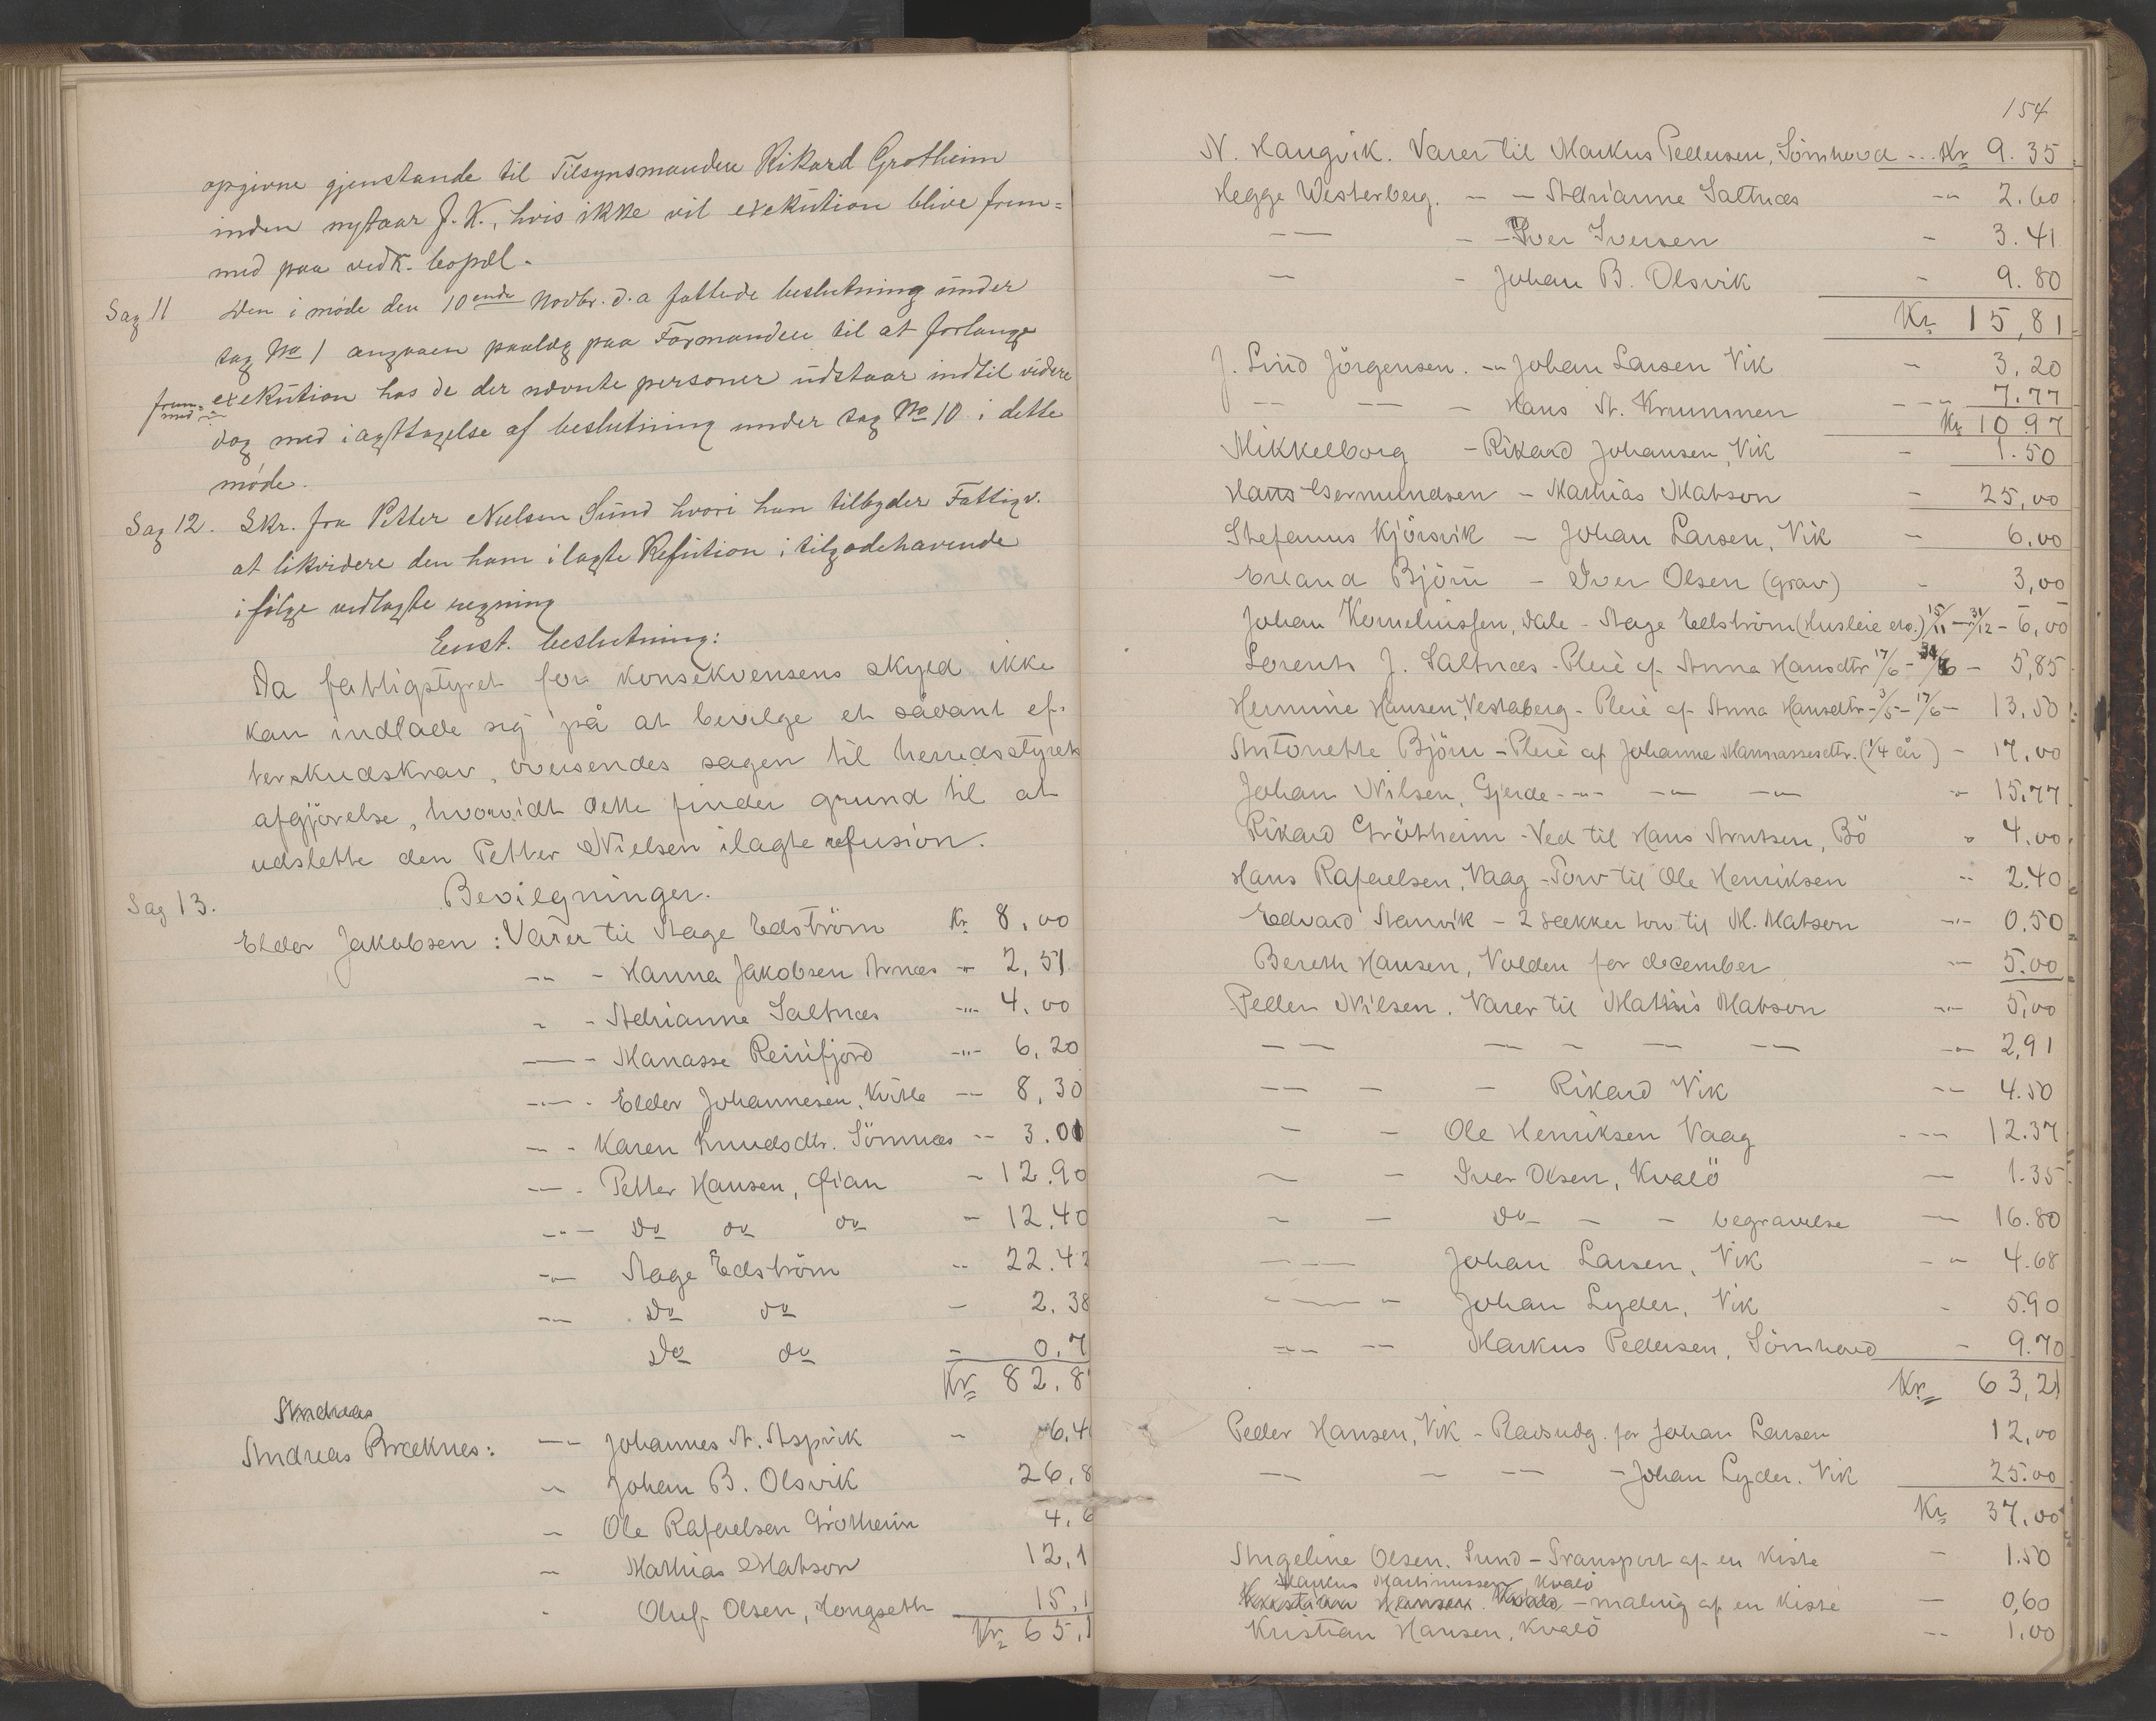 opgivne gjenstande til Tilsynsmanden Rikard Grotheim
inden nytaar f. K., hvis ikke vil exekution blive frem=
med paa vedk. bopæl.
Sag 11 Den i møde den 10ende Novbr. d.a fattede beslutning under
sag No 1 angaaen paalæg paa Formanden til at forlange
exekution hos de der nævnte personer udstaar indtil videre
frem= med
dog med iagttagelse af beslutning under sag No 10 i dette
møde.
Sag 12. Skr. fra Petter Nielsen Sund hvori han tilbyder Fattigv.
at likvidere den ham ilagte Refution i tilgodehavende
ifølge vedlagte regning
Enst. beslutning:
Da fattigstyret for konsekvensens skyld ikke
kan indlade sig på at bevilge et sådant ef-
terskudskrav, oversendes sagen til herredsstyrets
afgjörelse, hvorvidt dette finder grund til at
udslette den Petter Nielsen ilagte refusion.
Sag 13. Bevilgninger.
Elder Jakobsen: Varer til Aage Edström Kr. 8,00
-"- - Hanna Jakobsen Arnæs -"- 2,51
- - Adrianne Saltnæs -"- 4,00
— - Manasse Reinfjord -"- 6,20
-"- - Elder Johannesen, Kville -"- 8,30
- - Karen Knudsdtr. Sömnæs -"- 3.01
— - Petter Hansen, Qian - 12.90
-"- do do do - 12.40
-"- Aage Edström -"- 22.42
-"- do do - 2.38
do do - 0.7
Kr. 82.8
Andreas
Andreas Bræknes: -"- Johannes A. Aspvik - 6,4
-"- Johan B. Olsvik 26,8
-"- Ole Rafaelsen Grötheim 4,6
-"- Mathias Matson 12,1
- Oluf Olsen, Hongseth 15,1
Kr. 65,1
154
N. Haugvik. Varer til Markus Pedersen, Sömhoved ... Kr 9.35
Hegge Westerberg. - - Adrianne Saltnæs -"- 2.60
-- - - Iver Iversen - 3.41
- - Johan B. Olsvik - 9.80
Kr. 15,81
J. Lind Jörgensen. -"- Johan Larsen Vik - 3,20
-- -- - Hans A. Krummen - - - 7.77
Kr 10 97
Mikkelborg - Rikard Johansen, Vik - 1.50
Hans Germundsen - Mathias Matson - 25,00
Stefanus Kjörsvik - Johan Larsen, Vik - 6.00
Erland Björu - Iver Olsen (grav) - 3,00
Johan Korneliussen, Dale - Aage Edström (Husleie etc.) 15/11 - 31/12 - 6,00
Lorents J. Saltnæs - Pleie af Anna Hansdtr 17/6 - /6 - 5,85
Hermine Hansen, Vestaberg - Pleie af Anna Hansdtr - 3/5 - 17/6 - 13,50
Antonette Björu - Pleie af Johanne Mannassesdtr. (1/4 år) - 17,00
Johan Nilsen, Gjerde -"- -"- -"- -"- 15.77
Rikard Grötheim - Ved til Hans Arntsen, Bö " 4,00
Hans Rafaelsen, Vaag - Torv til Ole Henriksen -"- 2.40
Edvard Stanvik - 2 sækker torv til M. Matson -"- 0.50
Bereth Hansen, Volden for december -"- 5.00
Peder Nilsen. Varer til Mathis Matson -"- 5,00
-- -- - -- -- -"- 2,91
-- - - Rikard Vik -"- 4.50
- - Ole Henriksen Vaag - - - 12.37
- - Iver Olsen, Kvalö - 1.35
- - do - - begravelse - 16.80
- - - Johan Larsen, Vik - - 4.68
- - - Johan Lyder, Vik - 5.90
-- -- Markus Pedersen, Sömhoved - 9.70
Kr. 63,21
Peder Hansen, Vik - Radsudg. for Johan Larsen 12,00
-- - -- - Johan Lyder. Vik 25.00
Kr. 37.00
Angeline Olsen. Sund - Transport af en kiste - 1.50
Markus Martinussen, Kvalö
Kristian Hansen. Kvalö - maling af en kiste - 0,60
Kristian Hansen, Kvalö -- 1.00